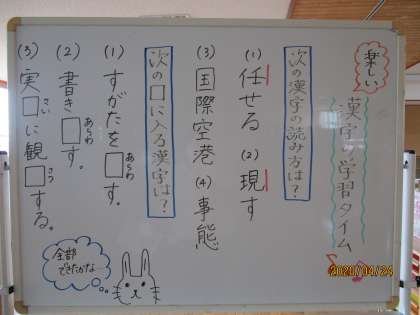 楽しい
漢字の学習タイム
次の漢字の読み方は?
(1) 任せる (2) 現す
(3) 国際空港 (4) 事態
次の□に入る漢字は?
(1) すがたを□す。
あらわ
(2) 書き□す。
あらわ
(3) 実□に観□する。
さい
さつ
全部
できたかな
2020/04/24